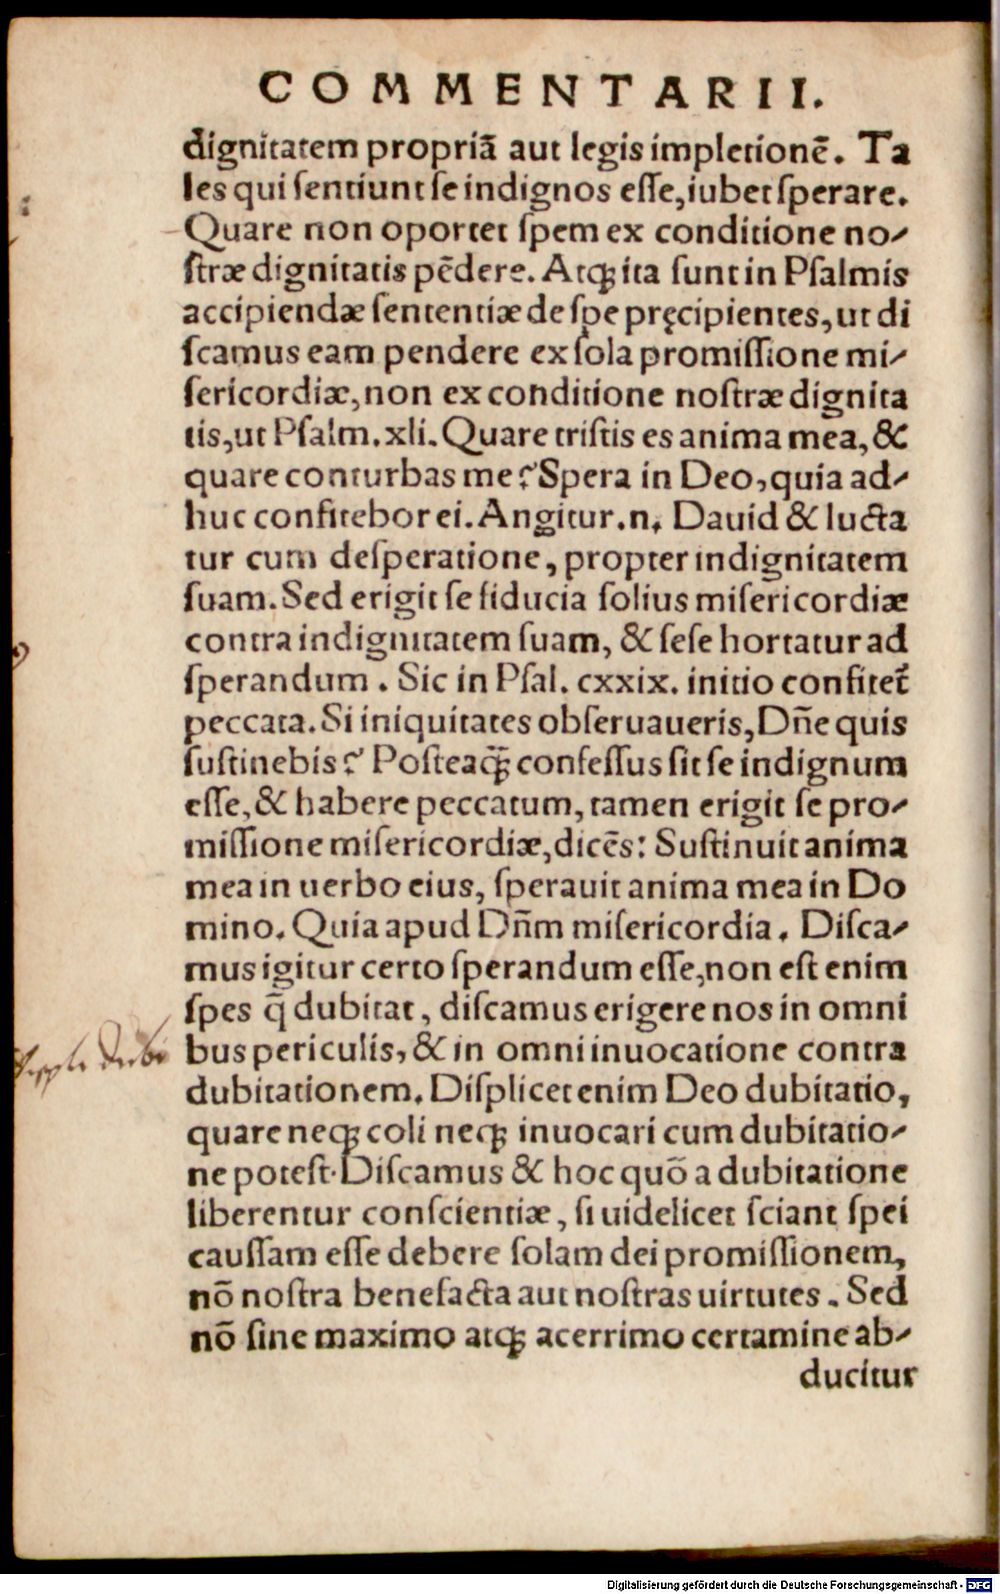 COMMENTARII.
dignitatem propriā aut legis impletionē. Ta
les qui ſentiunt ſe indignos eſſe, iubet ſperare.
Quare non oportet ſpem ex conditione no-
ſtræ dignitatis pēdere. Atqꝫ ita ſunt in Pſalmis
accipiendæ ſententiæ de ſpe pręcipientes, ut di
ſcamus eam pendere ex ſola promiſſione mi-
ſericordiæ, non ex conditione noſtræ dignita
tis, ut Pſalm. xli. Quare triſtis es anima mea, &
quare conturbas me? Spera in Deo, quia ad-
huc confitebor ei. Angitur .n. Dauid & lucta
tur cum deſperatione, propter indignitatem
ſuam. Sed erigit ſe fiducia ſolius miſericordiæ
contra indignitatem ſuam, & ſeſe hortatur ad
ſperandum. Sic in Pſal. cxxix. initio confitet᷑
peccata. Si iniquitates obſeruaueris, Dñe quis
ſuſtinebis? Poſteaqꝫ̄ confeſſus ſit ſe indignum
eſſe, & habere peccatum, tamen erigit ſe pro-
miſſione miſericordiæ, dicēs: Suſtinuit anima
mea in uerbo eius, ſperauit anima mea in Do
mino. Quia apud Dñm miſericordia. Diſca-
mus igitur certo ſperandum eſſe, non eſt enim
ſpes q̄ dubitat, diſcamus erigere nos in omni
bus periculis, & in omni inuocatione contra
dubitationem. Diſplicet enim Deo dubitatio,
quare neqꝫ coli neqꝫ inuocari cum dubitatio-
ne poteſt. Diſcamus & hoc quō a dubitatione
liberentur conſcientiæ, ſi uidelicet ſciant ſpei
cauſſam eſſe debere ſolam dei promiſſionem,
nō noſtra benefacta aut noſtras uirtutes. Sed
nō ſine maximo atqꝫ acerrimo certamine ab-
ducitur
Digitalisierung gefördert durch die Deutsche Forschungsgemeinschaft - DFG